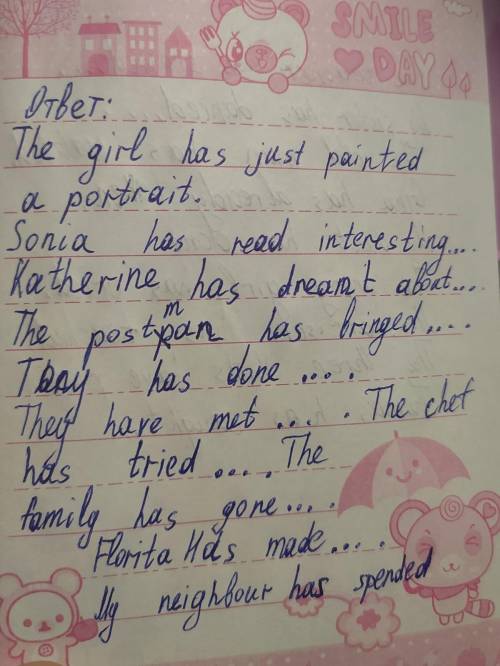 SMILE
DAY
Ответ:
The girl has just painted
a portrait.
Sonia has read interesting....
Katherine has dreamt about....
The postman has bringed....
Tony has done ....
They have met .... The chef
has tried .... The
family has gone ....
Florita Has made ....
My neighbour has spended